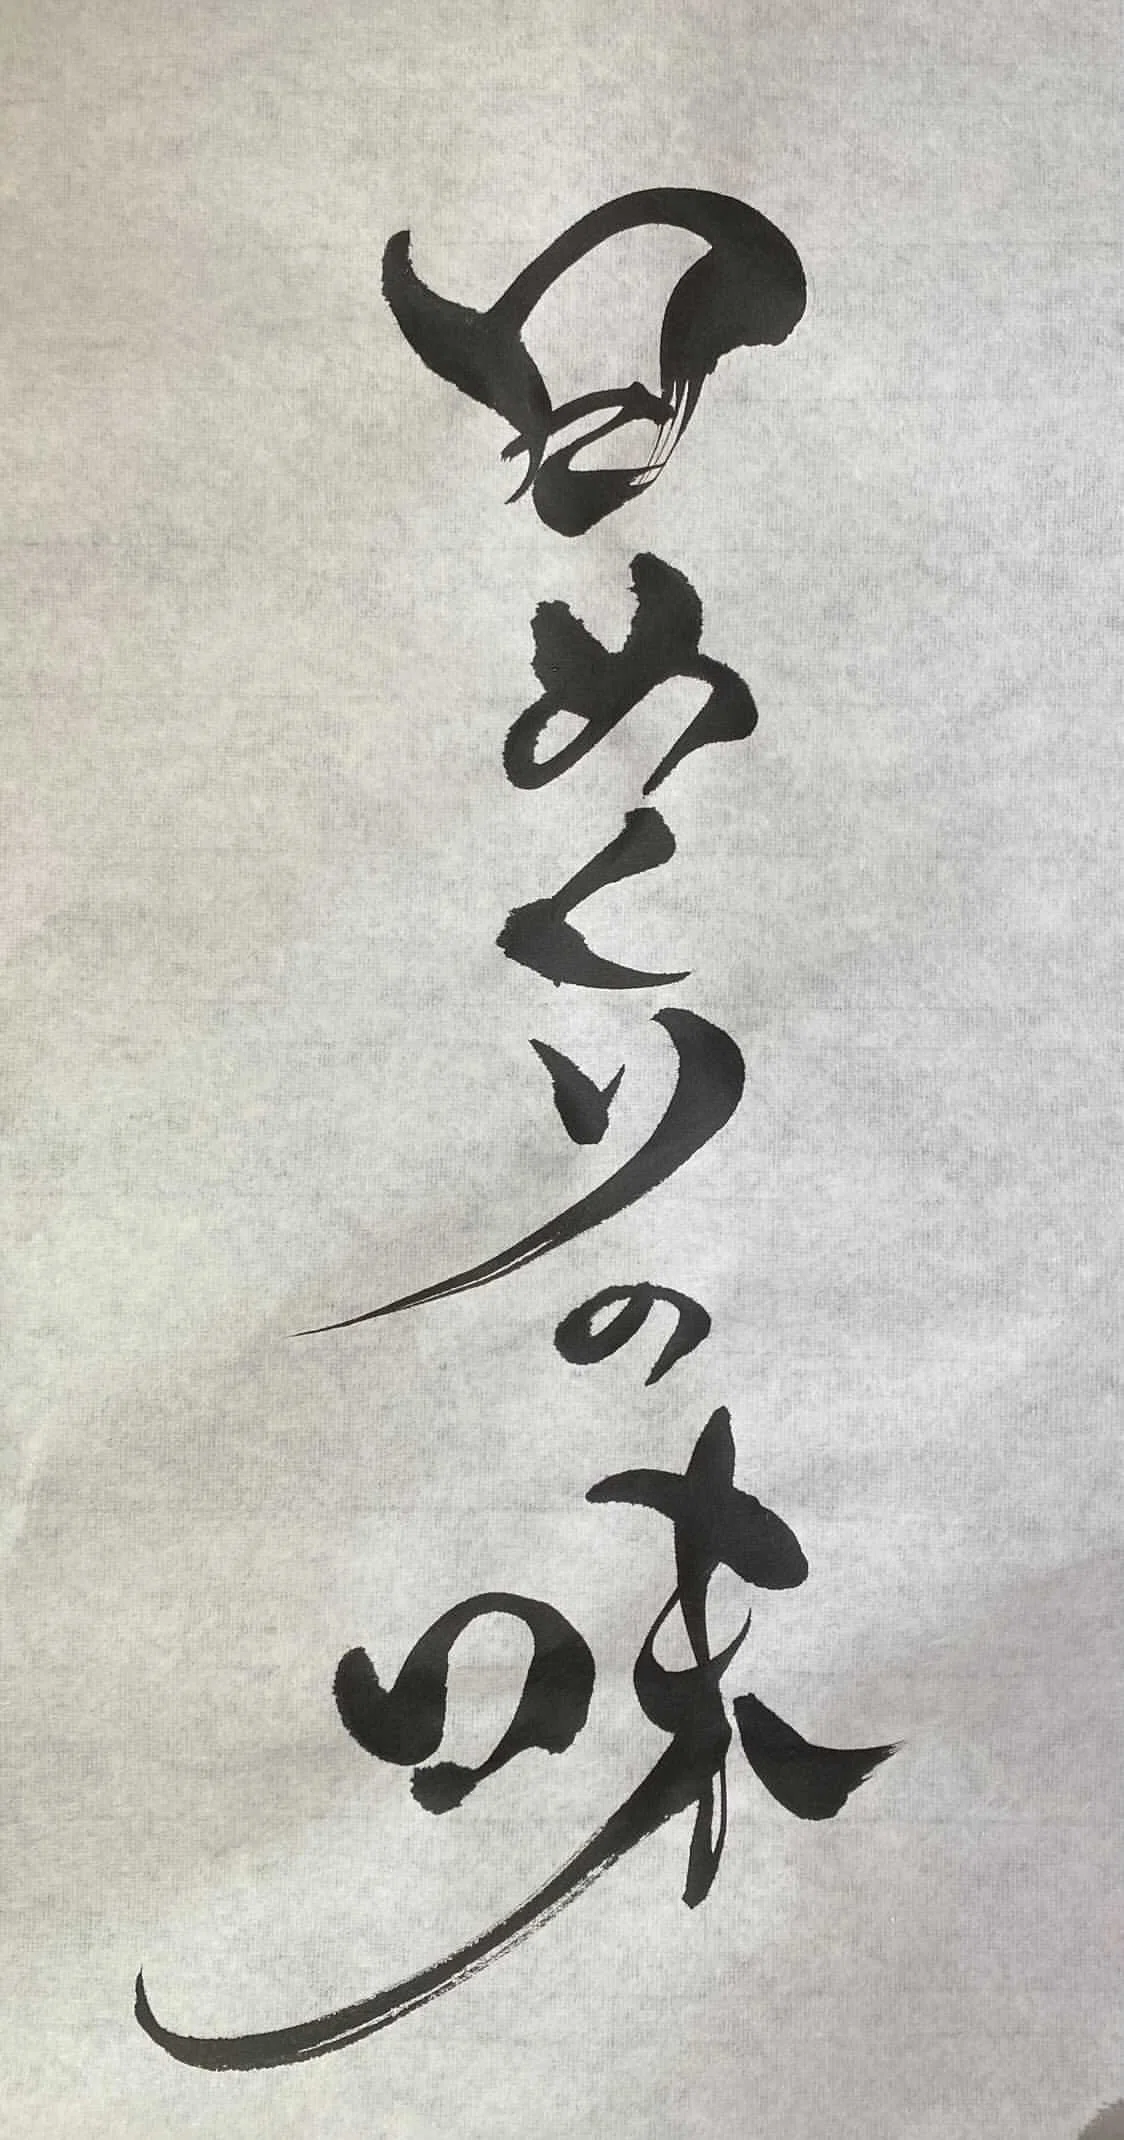 日めくりの味